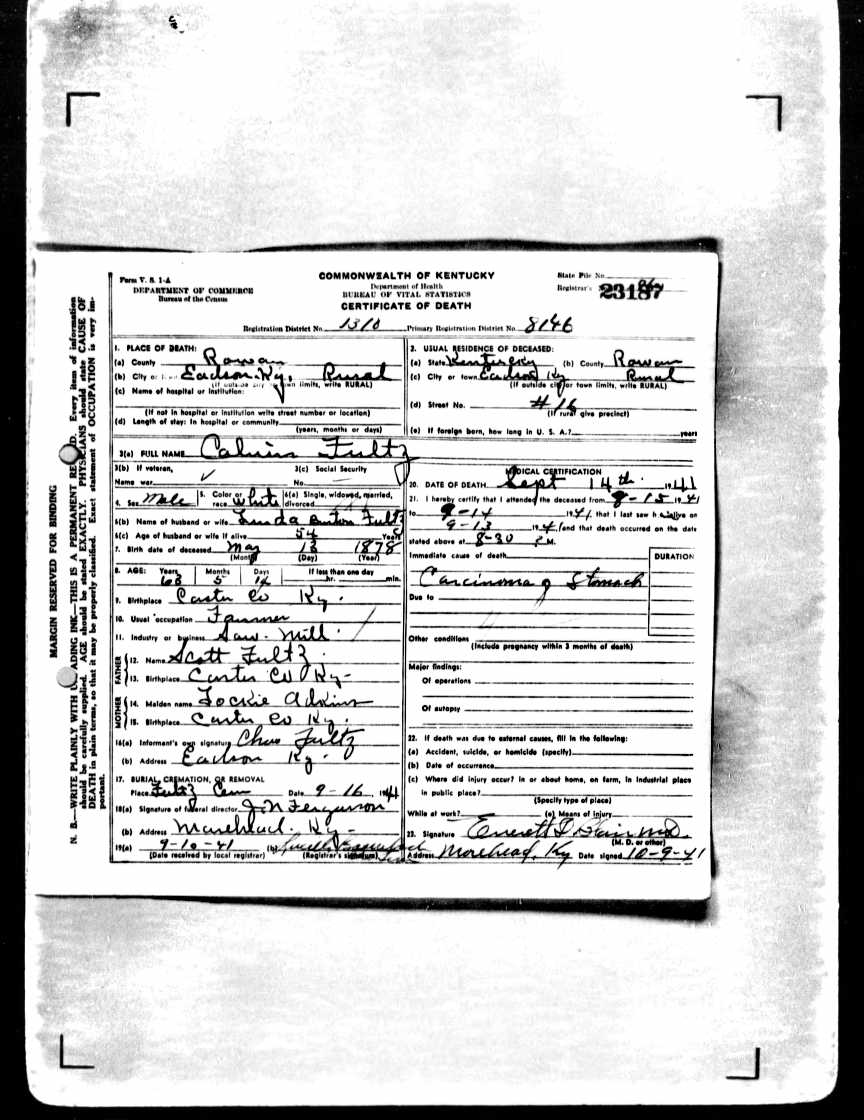 N. B.—WRITE PLAINLY WITH UNFADING INK—THIS IS A PERMANENT RECORD. Every item of information
should be carefully supplied. AGE should be stated EXACTLY. PHYSICIANS should state CAUSE OF
DEATH in plain terms, so that it may be properly classified. Exact statement of OCCUPATION is very im-
portant.
MARGIN RESERVED FOR BINDING
Form V. S. 1-A
DEPARTMENT OF COMMERCE
Bureau of the Census
COMMONWEALTH OF KENTUCKY
Department of Health
BUREAU OF VITAL STATISTICS
CERTIFICATE OF DEATH
State File No.
Registrar's 23187
Registration District No. 1310 Primary Registration District No. 8146
1. PLACE OF DEATH:
(a) County Rowan
(b) City or town Eadson Ky. Rural
(If outside city or town limits, write RURAL)
(c) Name of hospital or institution:
(If not in hospital or institution write street number or location)
(d) Length of stay: In hospital or community
(years, months or days)
2. USUAL RESIDENCE OF DECEASED:
(a) State Kentucky (b) County Rowan
(c) City or town Eadson Ky Rural
(If outside city or town limits, write RURAL)
(d) Street No. #16
(If rural give precinct)
(e) If foreign born, how long in U. S. A.? years
3(a) FULL NAME Calvin Fultz
3(b) If veteran, 3(c) Social Security
Name war No.
4. Sex Male 5. Color or race White 6(a) Single, widowed, married, divorced
6(b) Name of husband or wife Linda Binion Fultz
6(c) Age of husband or wife if alive 54 Years
7. Birth date of deceased May 13 1878
(Month) (Day) (Year)
8. AGE: Years Months Days If less than one day
63 5 14 hr. min.
9. Birthplace Carter Co Ky.
10. Usual occupation Farmer
11. Industry or business Saw. Mill.
FATHER
12. Name Scott Fultz.
13. Birthplace Carter Co Ky-
MOTHER
14. Maiden name Lockie Adkins
15. Birthplace Carter Co Ky.
16(a) Informant's own signature Chas Fultz
(b) Address Eadson Ky.
17. BURIAL, CREMATION, OR REMOVAL
Place Fultz Cem Date 9-16, 1941
18(a) Signature of funeral director J. N Ferguson
(b) Address Morehead. Ky-
19(a) 9-10-41 (b)
(Date received by local registrar) (Registrar's signature)
MEDICAL CERTIFICATION
20. DATE OF DEATH Sept 14th 1941
21. I hereby certify that I attended the deceased from 8-15 1941
to 9-14 1941, that I last saw h alive on
9-13 1941 and that death occurred on the date
stated above at 8-30 P M.
Immediate cause of death DURATION
Carcinoma of Stomach
Due to
Other conditions
(Include pregnancy within 3 months of death)
Major findings:
Of operations
Of autopsy
22. If death was due to external causes, fill in the following:
(a) Accident, suicide, or homicide (specify)
(b) Date of occurrence
(c) Where did injury occur? in or about home, on farm, in industrial place
in public place?
(Specify type of place)
While at work? (e) Means of injury
23. Signature Everett D Blair M.D.
(M. D. or other)
Address Morehead, Ky Date signed 10-9-41